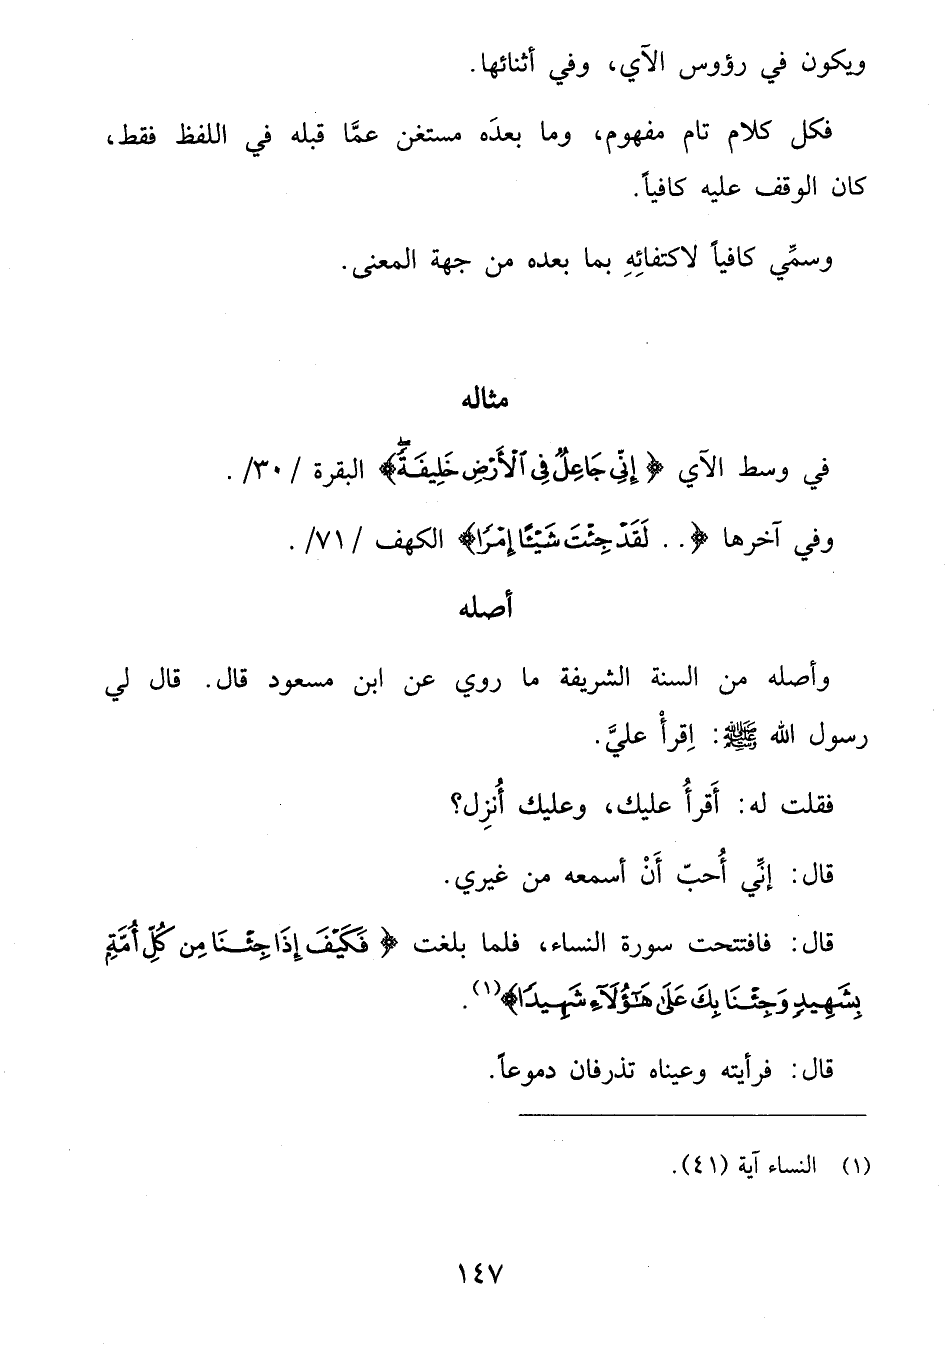 ويكون في رؤوس الآي، وفي أثنائها.
فكل كلام تام مفهوم، وما بعدَه مستغن عمَّا قبله في اللفظ فقط،
كان الوقف عليه كافياً.
وسمِّي كافياً لاكتفائِهِ بما بعده من جهة المعنى.
مثاله
في وسط الآي ﴿إِنِّي جَاعِلٌ فِي ٱلْأَرْضِ خَلِيفَةًۖ﴾ البقرة /٣٠/.
وفي آخرها ﴿.. لَقَدْ جِئْتَ شَيْـًٔا إِمْرًا﴾ الكهف /٧١/.
أصله
وأصله من السنة الشريفة ما روي عن ابن مسعود قال. قال لي
رسول الله ﷺ: اِقرأْ عليَّ.
فقلت له: أَقرأُ عليك، وعليك أُنزِل؟
قال: إنِّي أُحبّ أَنْ أسمعه من غيري.
قال: فافتتحت سورة النساء، فلما بلغت ﴿فَكَيْفَ إِذَا جِئْـنَا مِن كُلِّ أُمَّةٍ
بِشَهِيدٍ وَجِئْـنَا بِكَ عَلَىٰ هَـٰٓؤُلَآءِ شَهِـيدًا﴾(١).
قال: فرأيته وعيناه تذرفان دموعاً.
(١) النساء آية (٤١).
١٤٧